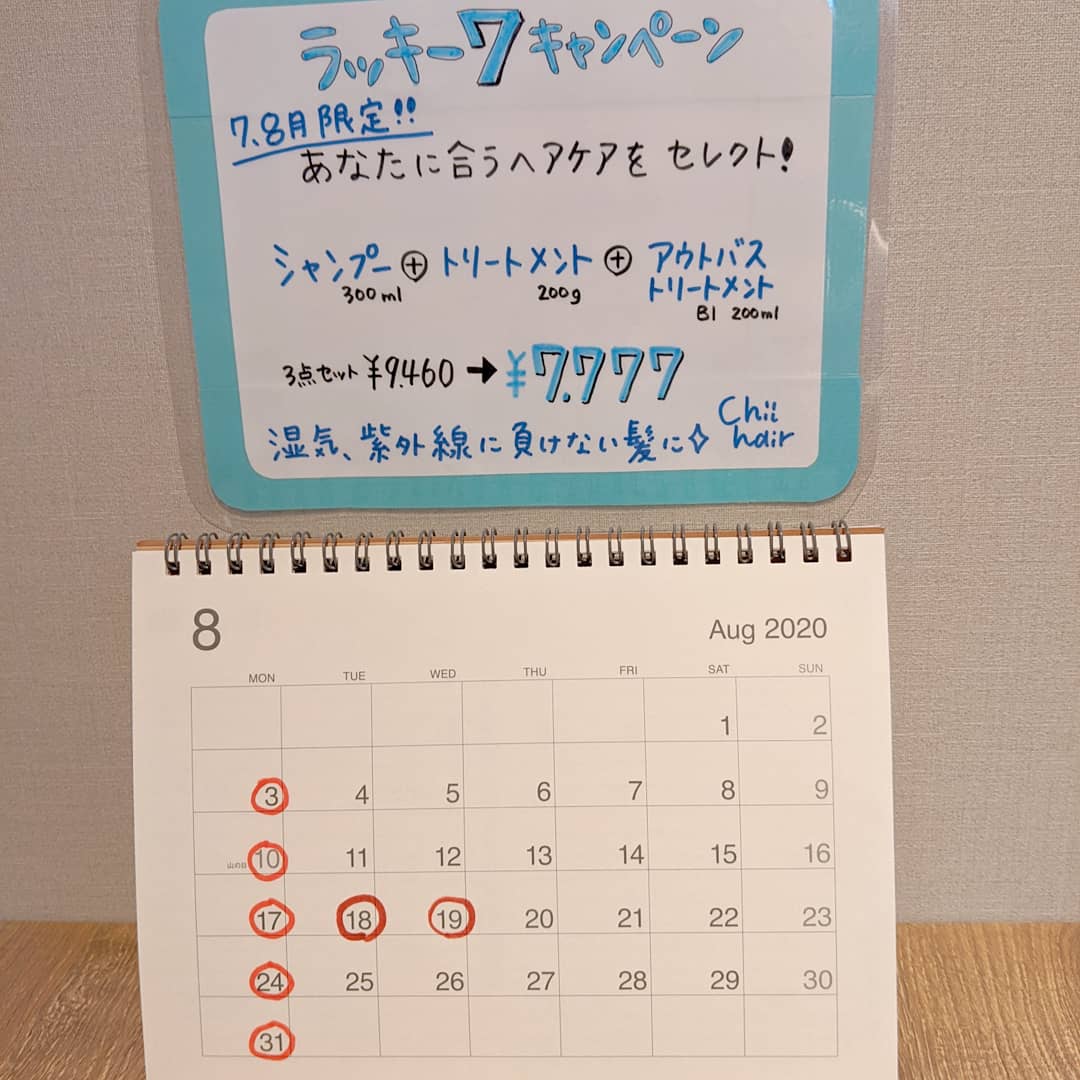 ラッキー7キャンペーン
7、8月限定!!
あなたに合うヘアケアをセレクト!
シャンプー⊕トリートメント⊕アウトバス
トリートメント
300ml 200g
B1 200ml
3点セット¥9.460→¥7.777
湿気、紫外線に負けない髪に✧
Chii
hair
8
Aug 2020
MON TUE WED THU FRI SAT SUN
1 2
3 4 5 6 7 8 9
山の日 10 11 12 13 14 15 16
17 18 19 20 21 22 23
24 25 26 27 28 29 30
31